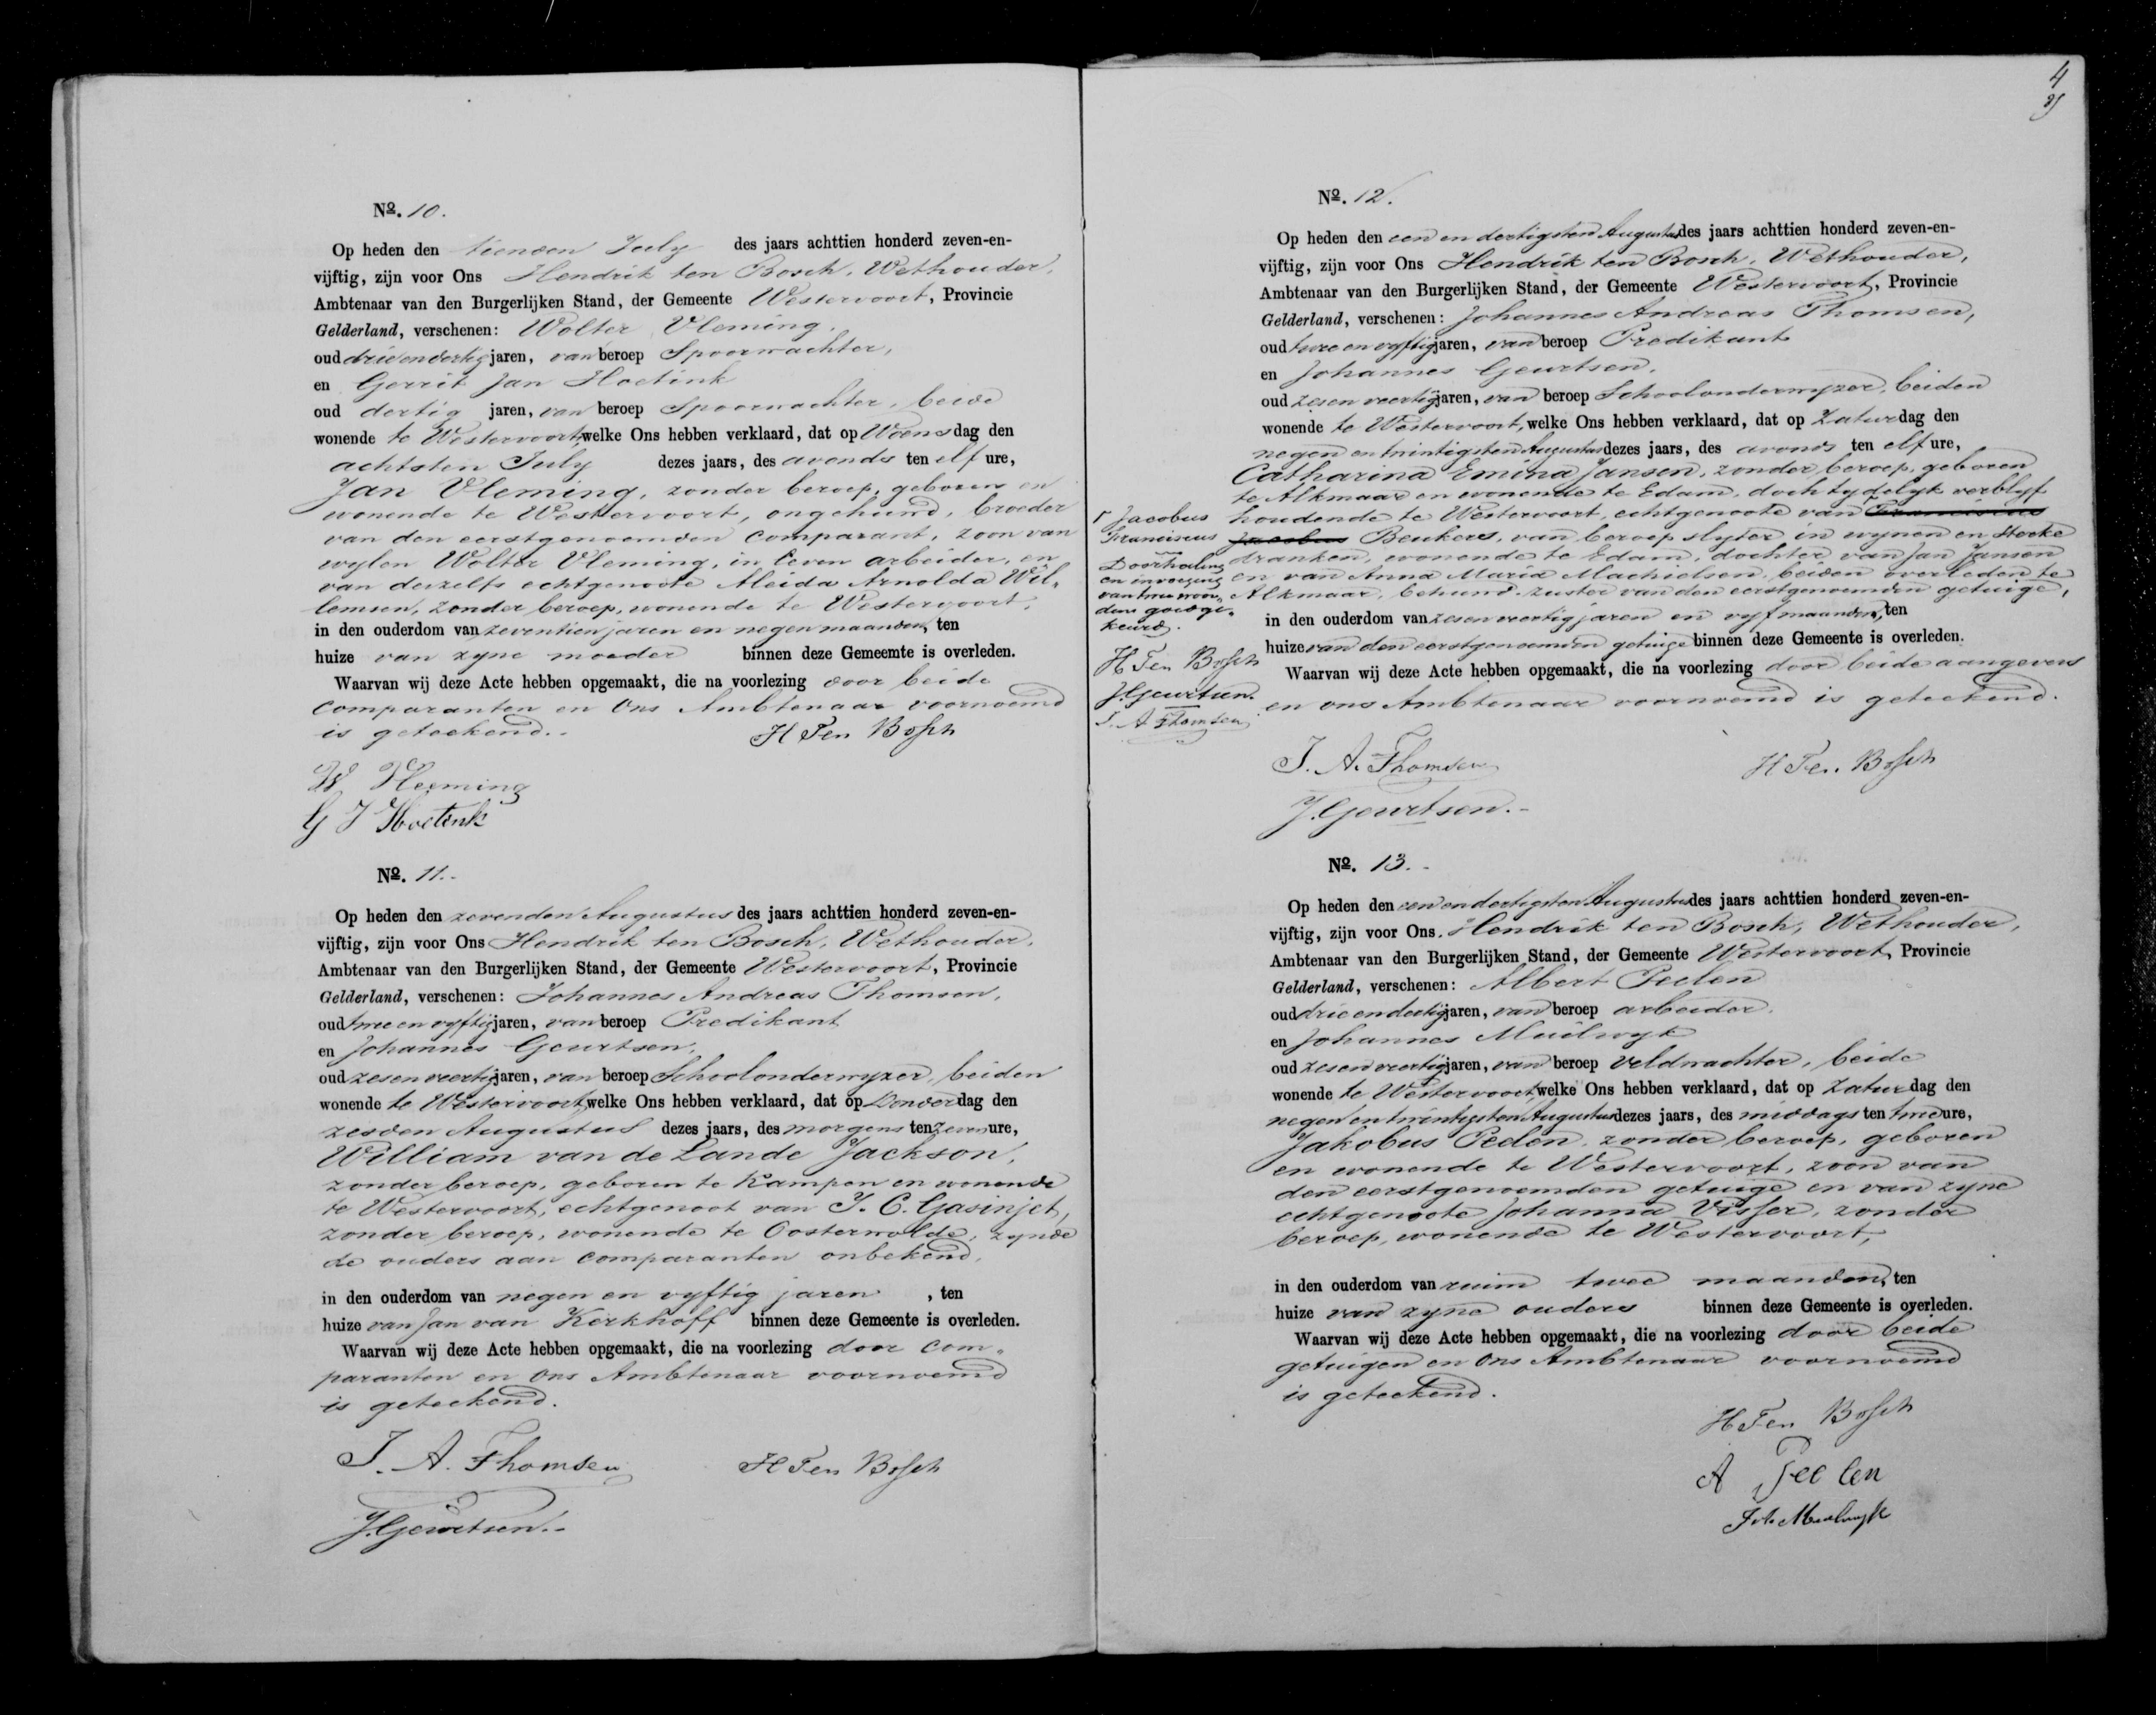 Nº. 10.
Op heden den tienden July des jaars achttien honderd zeven-en-
vijftig, zijn voor Ons Hendrik ten Bosch, Wethouder,
Ambtenaar van den Burgerlijken Stand, der Gemeente Westervoort, Provincie
Gelderland, verschenen: Wolter Vleming,
oud drieendertig jaren, van beroep Spoorwachter,
en Gerrit Jan Hoetink
oud dertig jaren, van beroep Spoorwachter, beide
wonende te Westervoort, welke Ons hebben verklaard, dat op Woensdag den
achtsten July dezes jaars, des avonds ten elf ure,
Jan Vleming, zonder beroep, geboren en
wonende te Westervoort, ongehuwd, broeder
van den eerstgenoemden Comparant, zoon van
wylen Wolter Vleming, in leven arbeider, en
van deszelfs echtgenoote Aleida Arnolda Wil„
lemsen, zonder beroep, wonende te Westervoort,
in den ouderdom van zeventien jaren en negen maanden, ten
huize van zyne moeder binnen deze Gemeemte is overleden.
Waarvan wij deze Acte hebben opgemaakt, die na voorlezing door beide
comparanten en Ons Ambtenaar voornoemd
is geteekend.
H Ten Bosch
W Vleeming
G J Hoetink
Nº. 11.
Op heden den zevenden Augustus des jaars achttien honderd zeven-en-
vijftig, zijn voor Ons Hendrik ten Bosch, Wethouder,
Ambtenaar van den Burgerlijken Stand, der Gemeente Westervoort, Provincie
Gelderland, verschenen: Johannes Andreas Thomsen,
oud twee en vyftig jaren, van beroep Predikant
en Johannes Geurtsen,
oud zesenveertig jaren, van beroep Schoolonderwyzer, beiden
wonende te Westervoort, welke Ons hebben verklaard, dat op Donderdag den
zesden Augustus dezes jaars, des morgens ten zeven ure,
William van de Lande Jackson,
zonder beroep, geboren te Kampen en wonende
te Westervoort, echtgenoot van J. C. Gasinjet,
zonder beroep, wonende te Oosterwolde, zynde
de ouders aan comparanten onbekend,
in den ouderdom van negen en vyftig jaren, ten
huize van Jan van Kerkhoff binnen deze Gemeente is overleden.
Waarvan wij deze Acte hebben opgemaakt, die na voorlezing door com„
paranten en Ons Ambtenaar voornoemd
is geteekend.
J. A. Thomsen H Ten Bosch
J. Geurtsen.
4
Nº. 12.
Op heden den een en dertigsten Augustus des jaars achttien honderd zeven-en-
vijftig, zijn voor Ons Hendrik ten Bosch, Wethouder,
Ambtenaar van den Burgerlijken Stand, der Gemeente Westervoort, Provincie
Gelderland, verschenen: Johannes Andreas Thomsen,
oud twee en vyftig jaren, van beroep Predikant
en Johannes Geurtsen,
oud zesenveertig jaren, van beroep Schoolonderwyzer, beiden
wonende te Westervoort, welke Ons hebben verklaard, dat op Zaturdag den
negen en twintigsten Augustus dezes jaars, des avonds ten elf ure,
Catharina Emina Jansen, zonder beroep, geboren
te Alkmaar en wonende te Edam, doch tydelyk verblyf
houdende te Westervoort, echtgenoote van Franciscus
Jacobus Beukers, van beroep slyter in wynen en Sterke
dranken, wonende te Edam, dochter van Jan Jansen
en van Anna Maria Machielsen, beiden overleden te
Alkmaar, behuwd zuster van den eerstgenoemden getuige,
in den ouderdom van zesenveertig jaren en vyf maanden, ten
huize van den eerstgenoemden getuige binnen deze Gemeente is overleden.
Waarvan wij deze Acte hebben opgemaakt, die na voorlezing door beide aangevers
en ons Ambtenaar voornoemd is geteekend.
Jacobus
Franciscus
Doorhaling
en invoeging
van twee woor„
den goedge„
keurd.
H Ten Bosch
J. Geurtsen.
J. A. Thomsen
J. A. Thomsen H Ten Bosch
J. Geurtsen.
Nº. 13.
Op heden den een en dertigsten Augustus des jaars achttien honderd zeven-en-
vijftig, zijn voor Ons Hendrik ten Bosch, Wethouder,
Ambtenaar van den Burgerlijken Stand, der Gemeente Westervoort, Provincie
Gelderland, verschenen: Albert Peelen
oud drie en dertig jaren, van beroep arbeider.
en Johannes Muilwyk
oud zesenveertig jaren, van beroep veldwachter, beide
wonende te Westervoort, welke Ons hebben verklaard, dat op Zaturdag den
negen en twintigsten Augustus dezes jaars, des middags ten twee ure,
Jakobus Peelen, zonder beroep, geboren
en wonende te Westervoort, zoon van
den eerstgenoemden getuige en van zyne
echtgenoote Johanna Visser, zonder
beroep, wonende te Westervoort,
in den ouderdom van ruim twee maanden, ten
huize van zyne ouders binnen deze Gemeente is overleden.
Waarvan wij deze Acte hebben opgemaakt, die na voorlezing door beide
getuigen en Ons Ambtenaar voornoemd
is geteekend.
H Ten Bosch
A Peelen